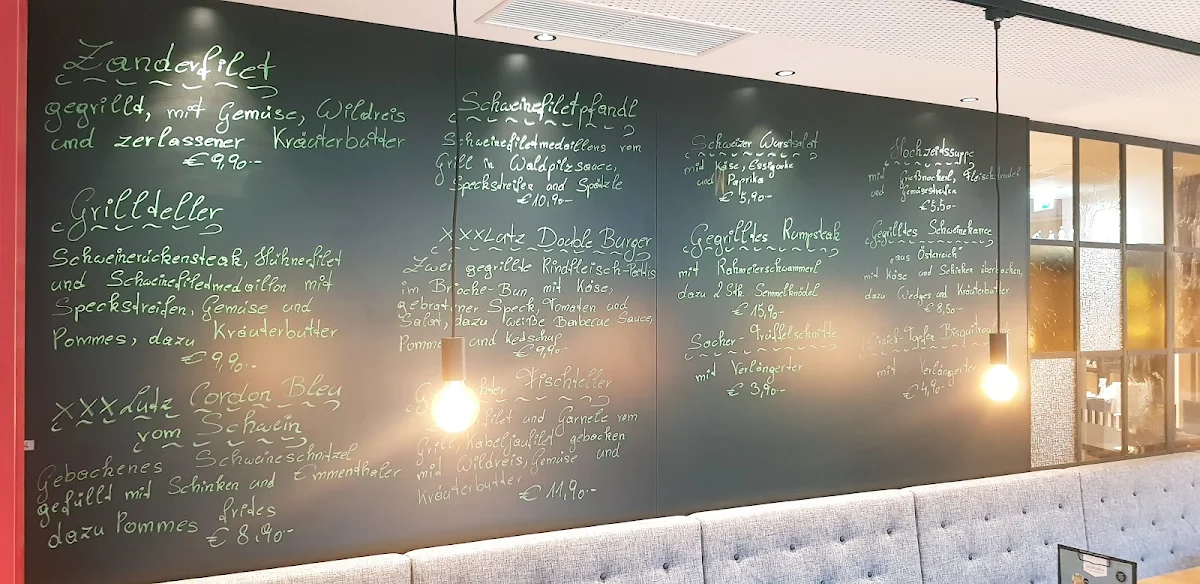 Zanderfilet
gegrillt, mit Gemüse, Wildreis
und zerlassener Kräuterbutter
€ 9,90.-
Grillteller
Schweinerückensteak, Hühnerfilet
und Schweinefiletmedaillon mit
Speckstreifen, Gemüse und
Pommes, dazu Kräuterbutter
€ 9,90.-
XXXLutz Cordon Bleu
vom Schwein
Gebackenes Schweineschnitzel
gefüllt mit Schinken und Emmenthaler
dazu Pommes frites
€ 8,90.-
Schweinefiletpfandl
Schweinefiletmedaillons vom
Grill in Waldpilzsauce,
Speckstreifen und Spätzle
€ 10,90.-
XXXLutz Double Burger
Zwei gegrillte Rindfleisch-Pattis
im Brioche-Bun mit Käse,
gebratener Speck, Tomaten und
Salat, dazu weiße Barbecue Sauce,
Pommes und ketschup
€ 9,90.-
Fischteller
und Garnele vom
Grill, Kabeljaufilet gebacken
mit Wildreis, Gemüse und
Kräuterbutter
€ 11,90.-
Schweizer Wurstsalat
mit Käse, Essiggurke
und Paprika
€ 5,90.-
Gegrilltes Rumpsteak
mit Rahmeierschwammerl
dazu 2 Stk. Semmelknödel
€ 15,90.-
Sacher-Trüffelschnitte
mit Verlängerter
€ 3,90.-
Hochzeitssuppe
mit Grießnockerl, Fleischstrudel
und Gemüsestreifen
€ 5,50.-
Gegrilltes Schweinekarree
"aus Österreich"
mit Käse und Schinken überbacken,
dazu Wedges und Kräuterbutter
€ 8,50.-
mit Verlängerter
€ 4,90.-